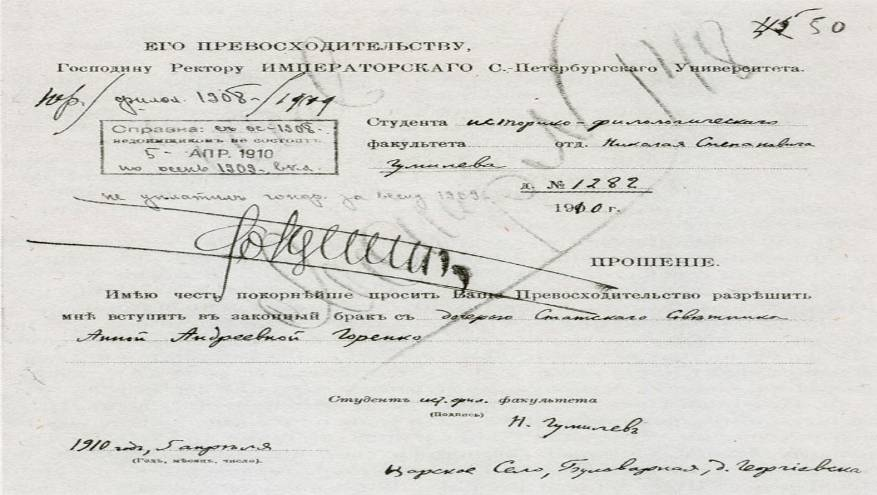 50
ЕГО ПРЕВОСХОДИТЕЛЬСТВУ,
Господину Ректору ИМПЕРАТОРСКАГО С.-Петербургскаго Университета.
Юр./филол. 1908 - /1909
Справка: съ ос-1908.
недоимщикомъ не состоитъ
5 - АПР. 1910
по осень 1909 - вкл.
не уплатилъ гонор. за весну 1909
Студента историко-филологическаго
факультета отд. Николая Степановича
Гумилева
д. № 1282
1910 г.
ПРОШЕНІЕ.
Имѣю честь покорнѣйше просить Ваше Превосходительство разрѣшить
мнѣ вступить въ законный бракъ съ дочерью Статскаго Совѣтника
Анной Андреевной Горенко
Студентъ ист. фил. факультета
(Подпись)
Н. Гумилевъ
1910 годъ, 5 апрѣля
(Годъ, мѣсяцъ, число).
Царское Село, Бульварная, д. Георгіевска